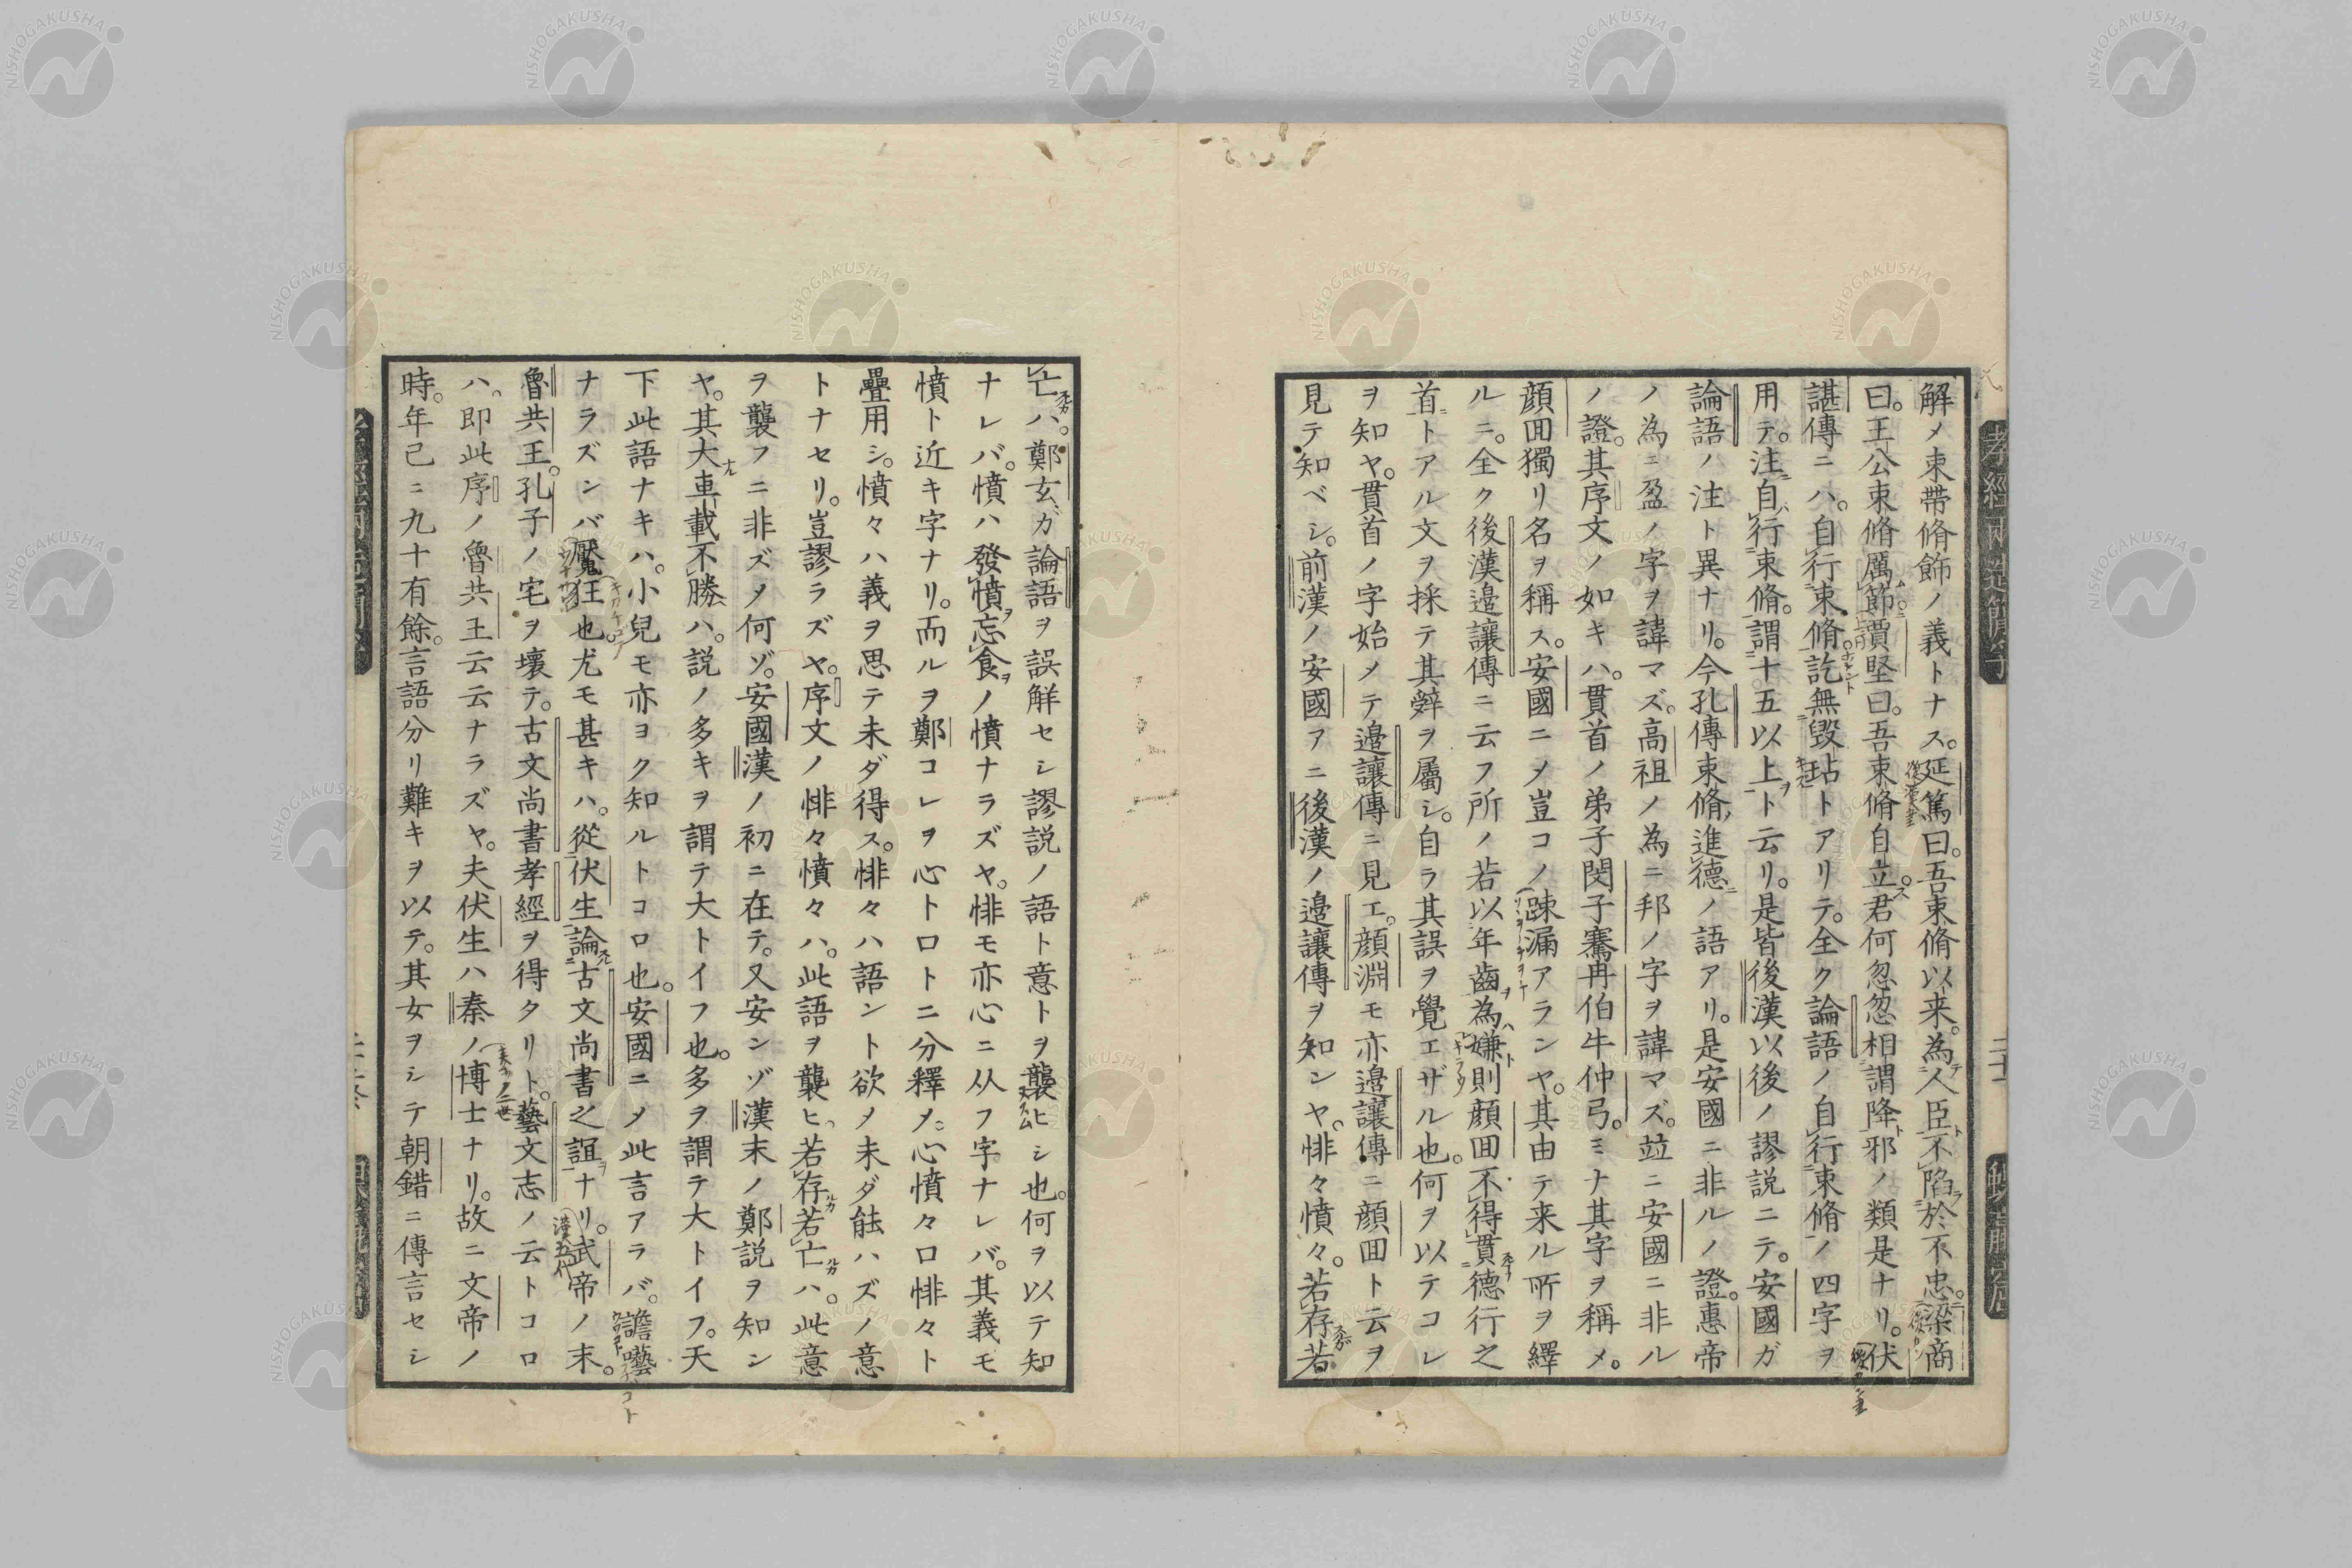 解メ束帶脩飾ノ義トナス。延篤曰。吾束脩以来。為人臣不陷於不忠。梁商
曰。王公束脩厲節。賈堅曰。吾束脩自立。君何忽忽相謂降邪ノ類是ナリ。伏
諶傳ニハ。自行束脩。訖無毀玷トアリテ。全ク論語ノ自行束脩ノ四字ヲ
用テ。注自行束脩。謂十五以上ト云リ。是皆後漢以後ノ謬説ニテ。安國ガ
論語ノ注ト異ナリ。今孔傳束脩進德ノ語アリ。是安國ニ非ルノ證。惠帝
ノ為ニ盈ノ字ヲ諱マズ。高祖ノ為ニ邦ノ字ヲ諱マズ。竝ニ安國ニ非ル
ノ證。其序文ノ如キハ。貫首ノ弟子閔子騫冉伯牛仲弓。ミナ其字ヲ稱メ。
顔囬獨リ名ヲ稱ス。安國ニメ豈コノ疎漏アランヤ。其由テ来ル所ヲ繹
ルニ。全ク後漢邉讓傳ニ云フ所ノ若以年齒為嫌則顔囬不得貫德行之
首トアル文ヲ採テ其辭ヲ屬シ。自ラ其誤ヲ覺エザル也。何ヲ以テコレ
ヲ知ヤ。貫首ノ字始メテ邉讓傳ニ見エ。顔淵モ亦邉讓傳ニ顔囬ト云ヲ
見テ知ベシ。前漢ノ安國アニ後漢ノ邉讓傳ヲ知ンヤ。悱々憤々。若存若
亡ハ。鄭玄ガ論語ヲ誤解セシ謬説ノ語ト意トヲ襲ヒシ也。何ヲ以テ知
ナレバ。憤ハ發憤忘食ノ憤ナラズヤ。悱モ亦心ニ从フ字ナレバ。其義モ
憤ト近キ字ナリ。而ルヲ鄭コレヲ心ト口トニ分釋メ。心憤々口悱々ト
疊用シ。憤々ハ義ヲ思テ未ダ得ス。悱々ハ語ント欲メ未ダ能ハズノ意
トナセリ。豈謬ラズヤ。序文ノ悱々憤々ハ。此語ヲ襲ヒ。若存若亡ハ。此意
ヲ襲フニ非ズメ何ゾ。安國漢ノ初ニ在テ。又安ンゾ漢末ノ鄭説ヲ知ン
ヤ。其大車載不勝ハ。説ノ多キヲ謂テ大トイフ也。多ヲ謂テ大トイフ。天
下此語ナキハ。小兒モ亦ヨク知ルトコロ也。安國ニメ此言アラバ。譫囈
ナラズンバ魘狂也。尤モ甚キハ。從伏生論古文尚書之誼ナリ。武帝ノ末。
魯共王。孔子ノ宅ヲ壞テ。古文尚書孝經ヲ得タリト。藝文志ノ云トコロ
ハ。即此序ノ魯共王云云ナラズヤ。夫伏生ハ秦ノ博士ナリ。故ニ文帝ノ
時。年已ニ九十有餘。言語分リ難キヲ以テ。其女ヲシテ朝錯ニ傳言セシ